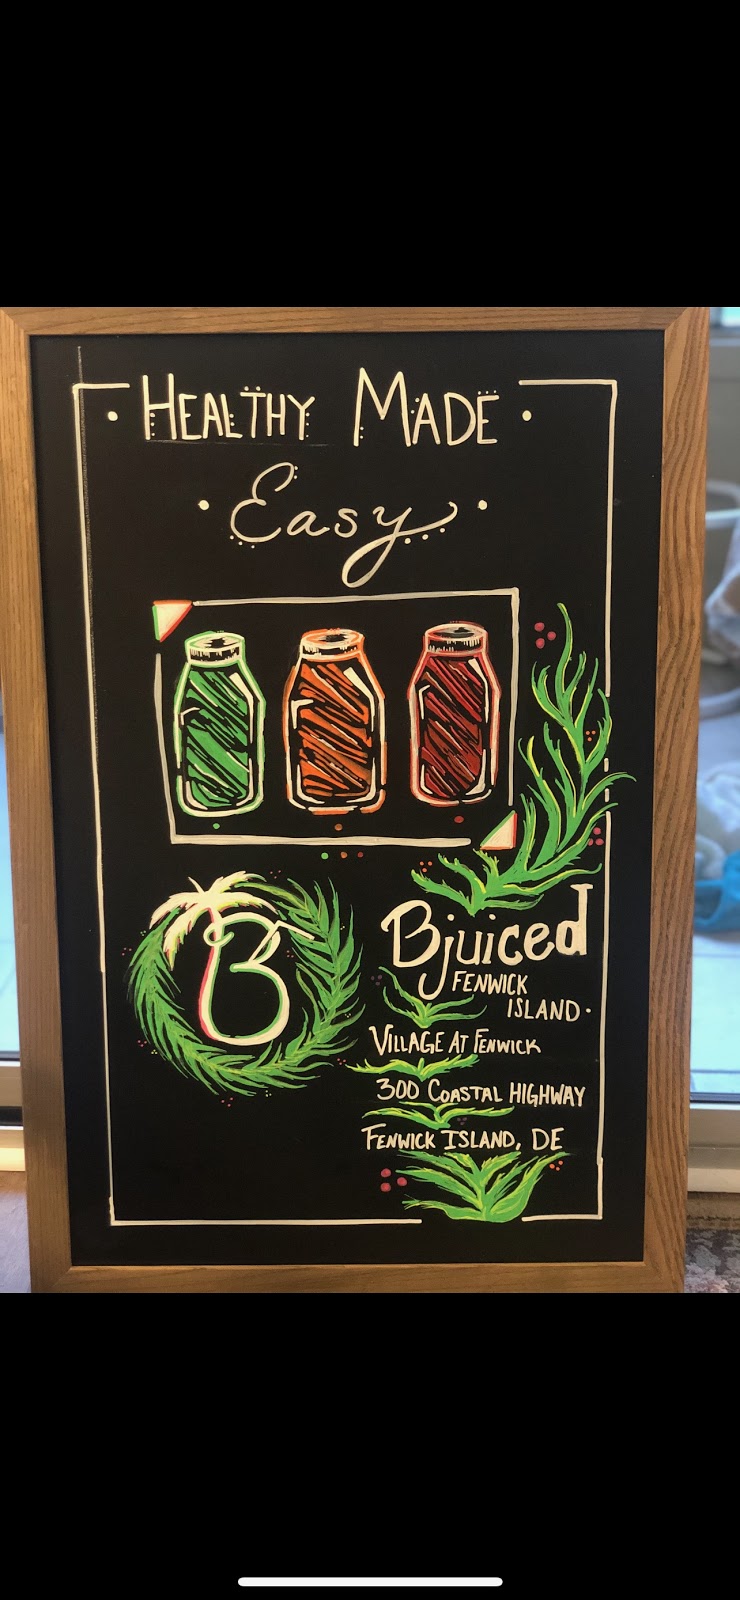 HEALTHY MADE
Easy
B
Bjuiced
FENWICK
ISLAND
VILLAGE AT FENWICK
300 COASTAL HIGHWAY
FENWICK ISLAND, DE